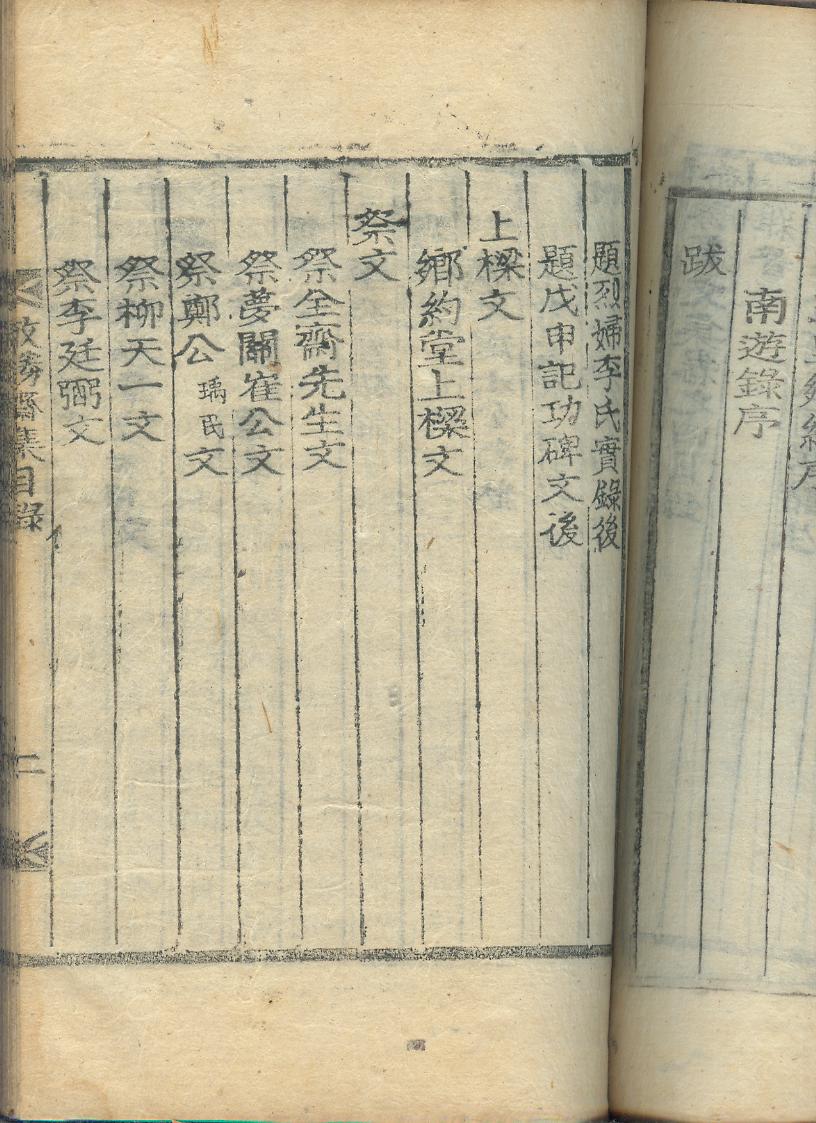 南遊錄序
跋
題烈婦李氏實錄後
題戊申記功碑文後
上樑文
鄉約堂上樑文
祭文
祭全齋先生文
祭夢關崔公文
祭鄭公瑀民文
祭柳天一文
祭李廷弼文
齋集目錄
二